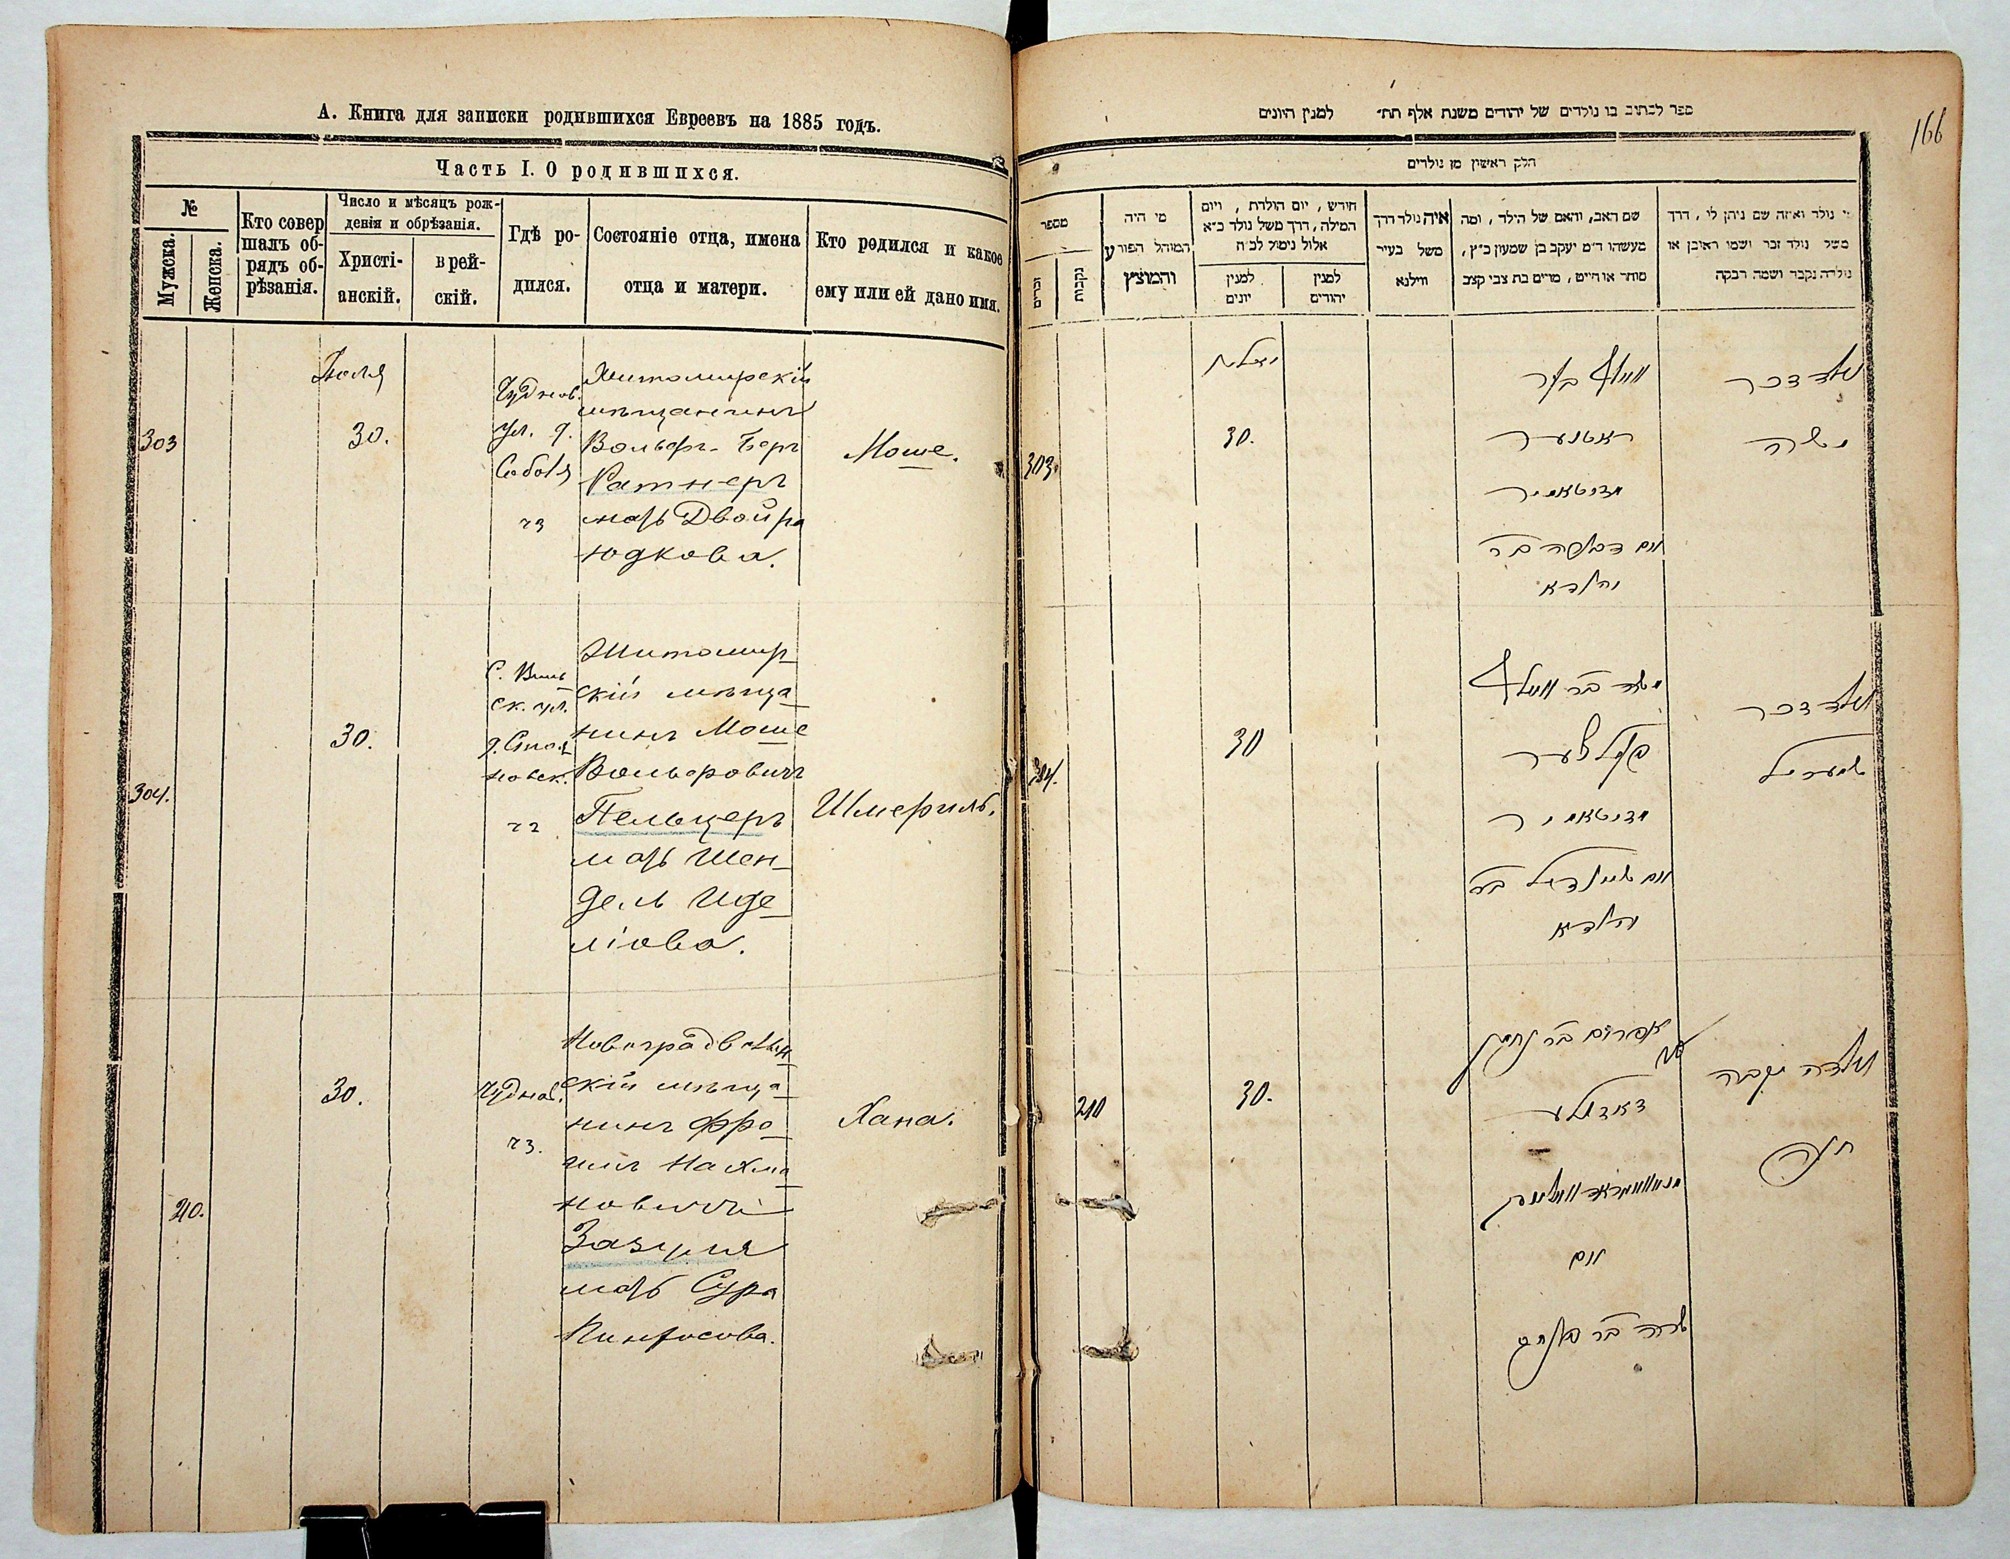 А. Книга для записки родившихся Евреевъ на 1885 годъ.
Часть I. О родившихся.
№
Мужска.
Женска.
Кто совер
шалъ об-
рядъ об-
рѣзанія.
Число и мѣсяцъ рож-
денія и обрѣзанія.
Христі-
анскій.
врей-
скій.
Гдѣ ро-
дился.
Состояніе отца, имена
отца и матери.
Кто родился и какое
ему или ей дано имя.
303
Июля
30.
Чуднов.
ул. д.
ч3
Житомирскій
мѣщанинъ
Вольфъ-Беръ
Ратнеръ
мать Двойра
Юдкова.
Моше.
304.
30.
ск. ул.
ч2
Житомир-
скій мѣща-
нинъ Моше
Вольфовичъ
Пельцеръ
мать Шен-
дель Иде-
ліова.
Шмериль.
210.
30.
Чуднов.
ч3.
скій мѣща-
нинъ Фро-
имъ Нахма-
новичъ
мать Сура
Пинхосова.
Хана.
ספר לכתוב בו נולדים של יהודים משנת אלף תת״ למנין היונים
166
חלק ראשון מן נולדים
מספר
זכרים
נקבות
מי היה
המוהל הפורע
והמוצץ
חודש, יום הולדת, ויום
המילה, דרך משל נולד כ״א
אלול נימול לכ״ח
למנין
יונים
למנין
יהודים
איה נולד דרך
משל בעיר
ווילנא
שם האב, והאם של הילד, ומה
מעשהו ד״מ יעקב בן שמעון כ״ץ,
סוחר או חייט, מרים בת צבי קצב
מי נולד ואיזה שם ניתן לו, דרך
משל נולד זכר ושמו ראובן או
נולדה נקבה ושמה רבקה
303.
יולי
30.
וואלף בער
ראטנער
זיטאמיר
נולד זכר
משה
304.
30
משה בר וואלף
פעלצער
זיטאמיר
נולד זכר
שמעריל
210
30.
אפרים בר נחמן
ואם
שרה בר פנחס
נולדה נקבה
חנה